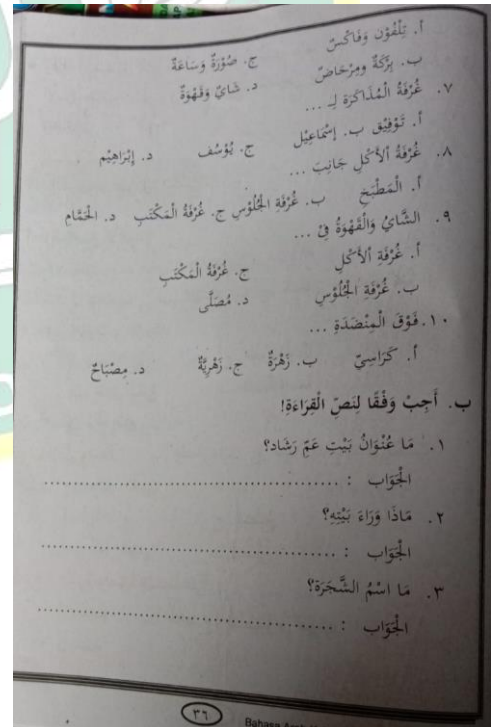 أ. تِلْفُوْن وَفَاكْسٌ
ج. صُوْرَةٌ وَسَاعَةٌ
ب. بِرْكَةٌ ومِرْحَاضٌ
د. شَايٌ وَقَهْوَةٌ
٧. غُرْفَةُ الْمُذَاكَرَة لِـ ...
أ. تَوْفِيْق ب. إِسْمَاعِيْل ج. يُوْسُف د. إِبْرَاهِيْم
٨. غُرْفَةُ الأَكْلِ جَانِبَ ...
أ. الْمَطْبَخِ ب. غُرْفَةِ الْجُلُوْسِ ج. غُرْفَةُ الْمَكْتَبِ د. الْحَمَّامِ
٩. الشَّايُ وَالْقَهْوَةُ فِيْ ...
أ. غُرْفَةِ الأَكْلِ ج. غُرْفَةُ الْمَكْتَبِ
ب. غُرْفَةِ الْجُلُوْسِ د. مُصَلَّى
١٠. فَوْقَ الْمِنْضَدَةِ ...
أ. كَرَاسِيّ ب. زَهْرَةٌ ج. زَهْرِيَّةٌ د. مِصْبَاحٌ
ب. أَجِبْ وَفْقًا لِنَصِّ الْقِرَاءَةِ!
١. مَا عُنْوَانُ بَيْتِ عَمّ رَشَاد؟
الْجَوَاب : ........................................
٢. مَاذَا وَرَاءَ بَيْتِهِ؟
الْجَوَاب : ........................................
٣. مَا اسْمُ الشَّجَرَة؟
الْجَوَاب : ........................................
٣٦
Bahasa